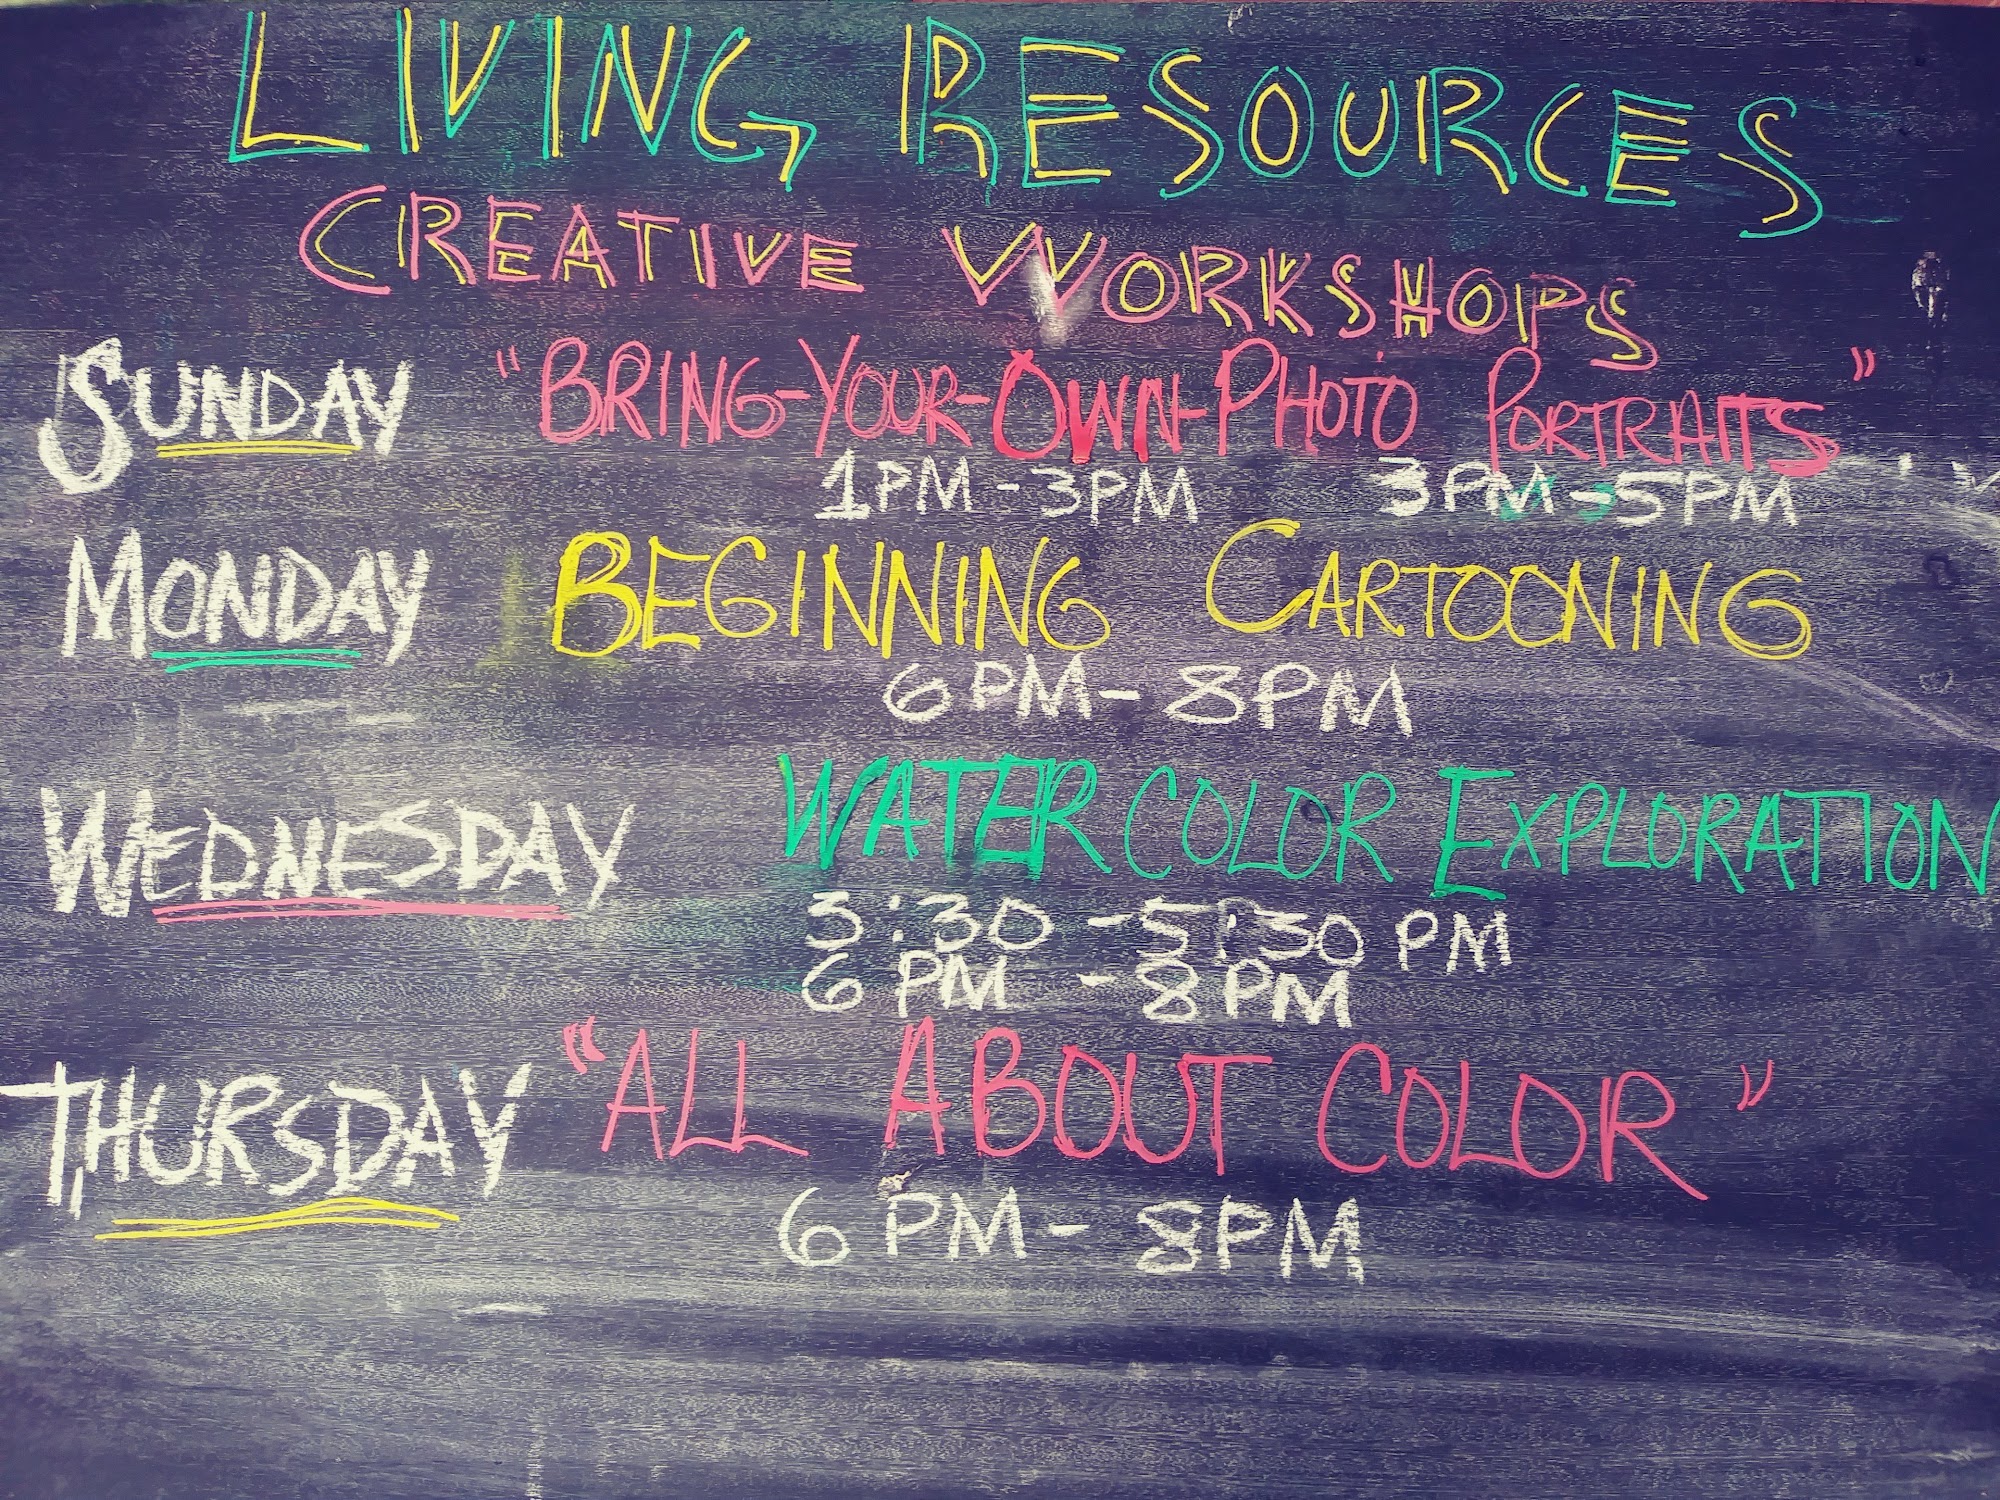 LIVING RESOURCES
CREATIVE WORKSHOPS
SUNDAY "BRING-YOUR-OWN-PHOTO PORTRAITS"
1PM-3PM 3PM-5PM
MONDAY BEGINNING CARTOONING
6PM-8PM
WEDNESDAY WATERCOLOR EXPLORATION
3:30-5:30 PM
6 PM - 8PM
THURSDAY "ALL ABOUT COLOR"
6 PM - 8PM